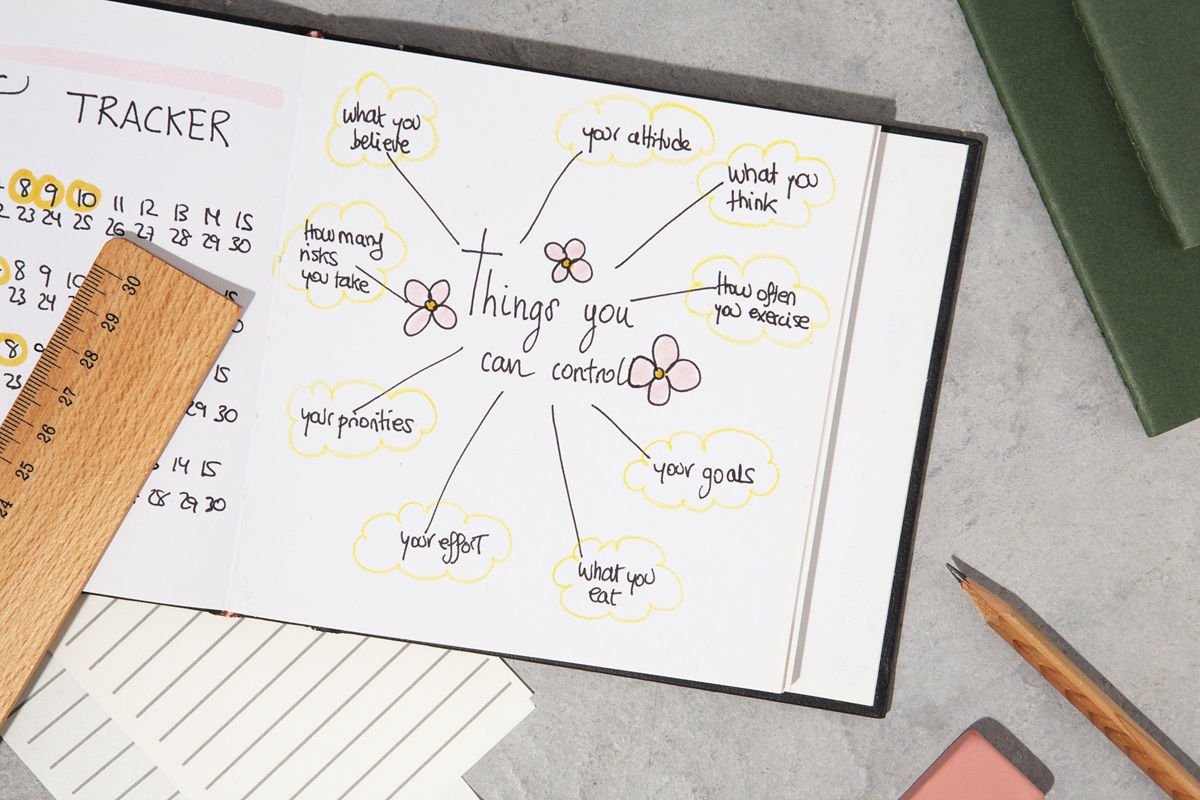 TRACKER
8 9 10 11 12 13 14 15
23 24 25 26 27 28 29 30
8 9 10 15
23 24
8 9 15
23 29 30
14 15
28 29 30
30
29
28
27
26
25
24
what you
believe
your altitude
what you
think
How many
risks
you take
How often
you exercise
Things you
can control
your priorities
your goals
your effort
what you
eat